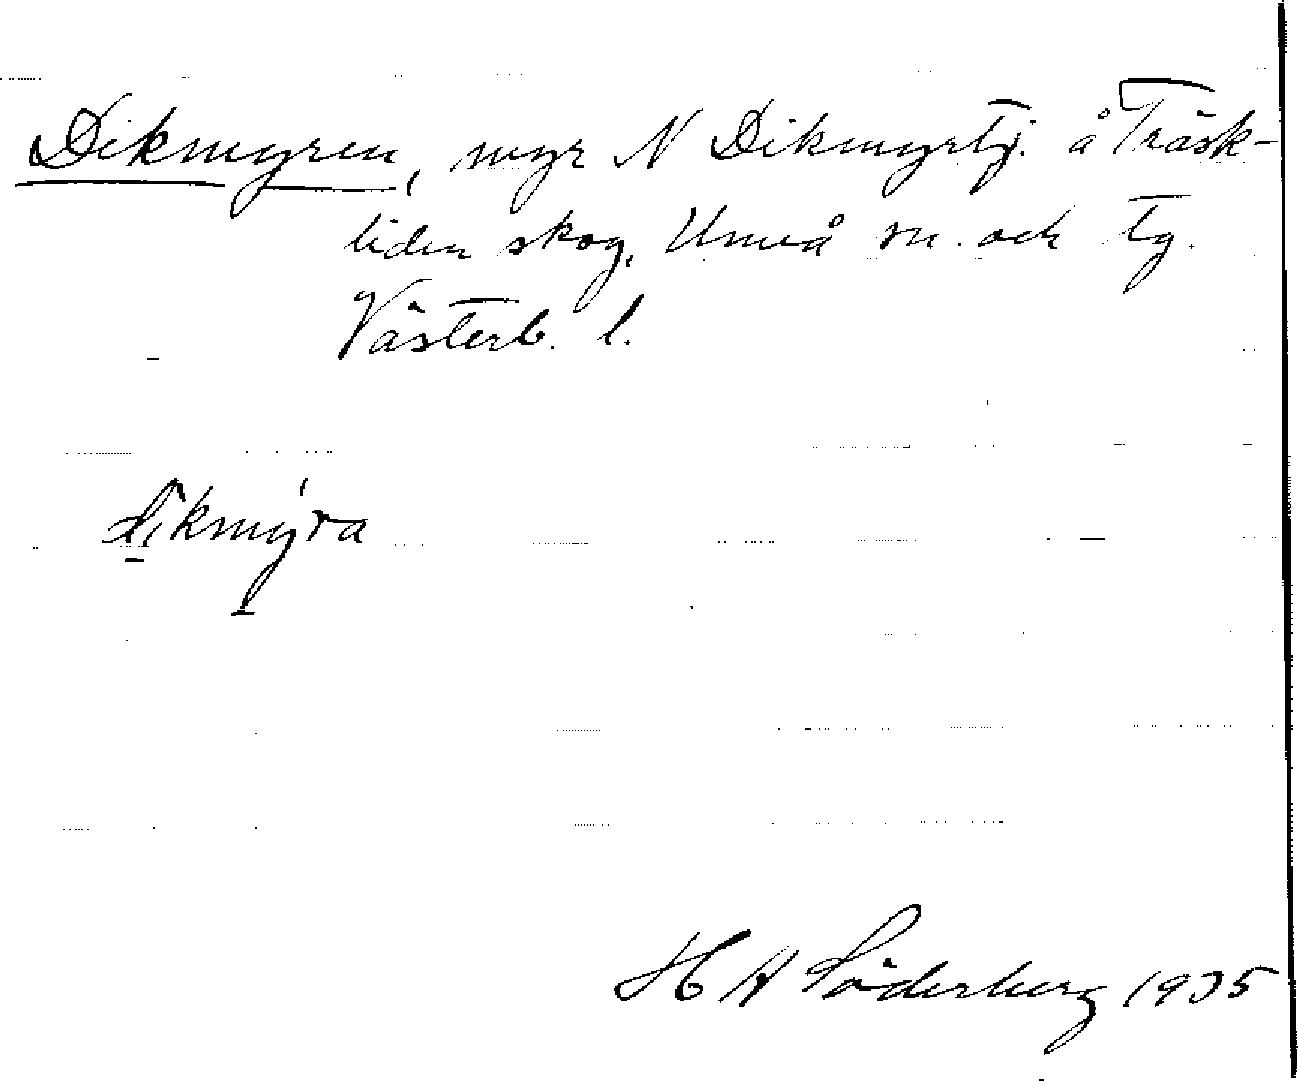 Dikmyren, myr N Dikmyrtj. å Träsk-
liden skog, Umeå sn. och tg.
Västerb. l.
dikmýra
H A Söderberg 1935